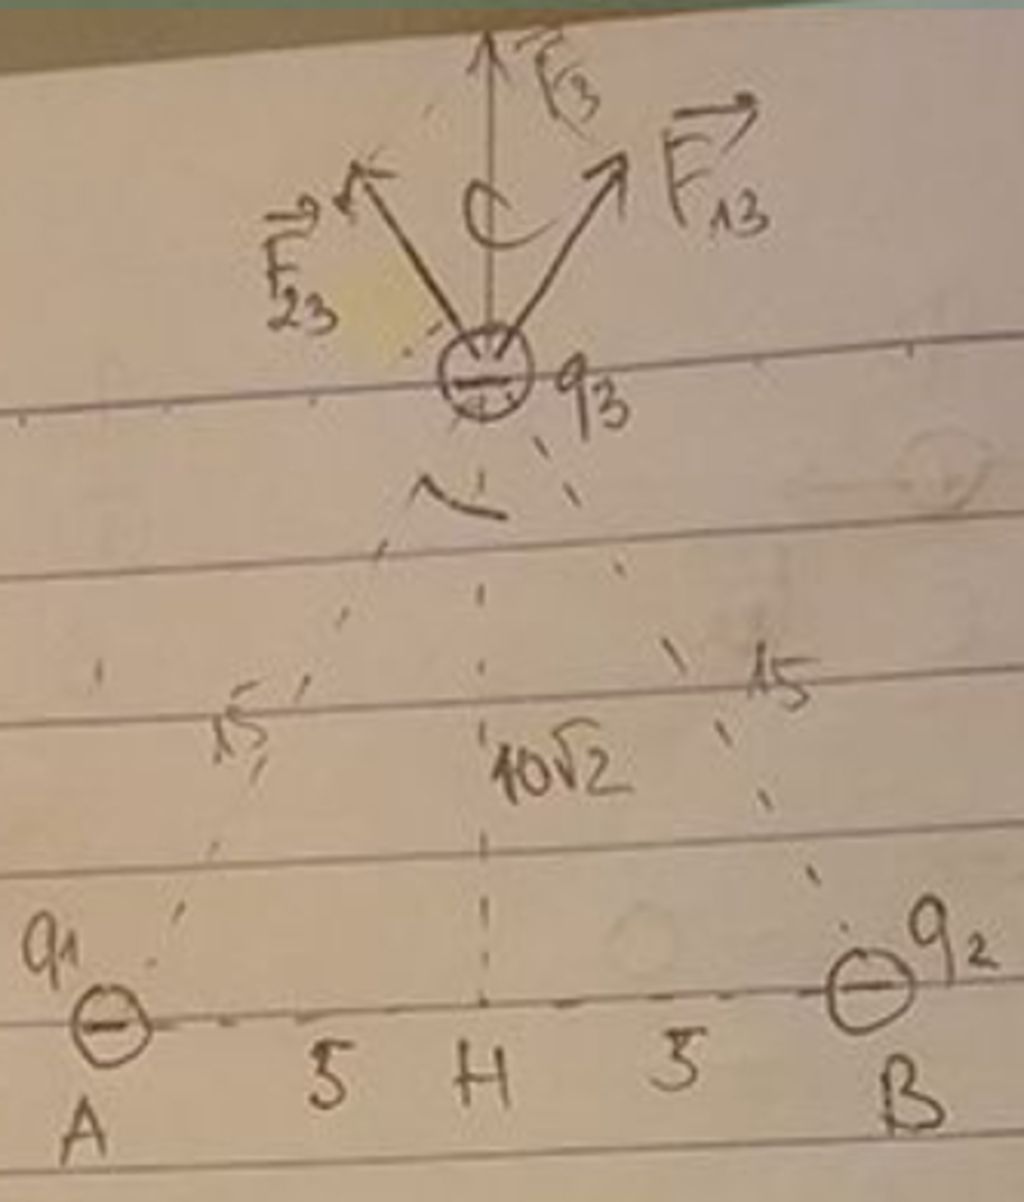 F₃
F₁₃
F₂₃
C
q₃
15 15
10√2
q₁ q₂
5 H 5
A B